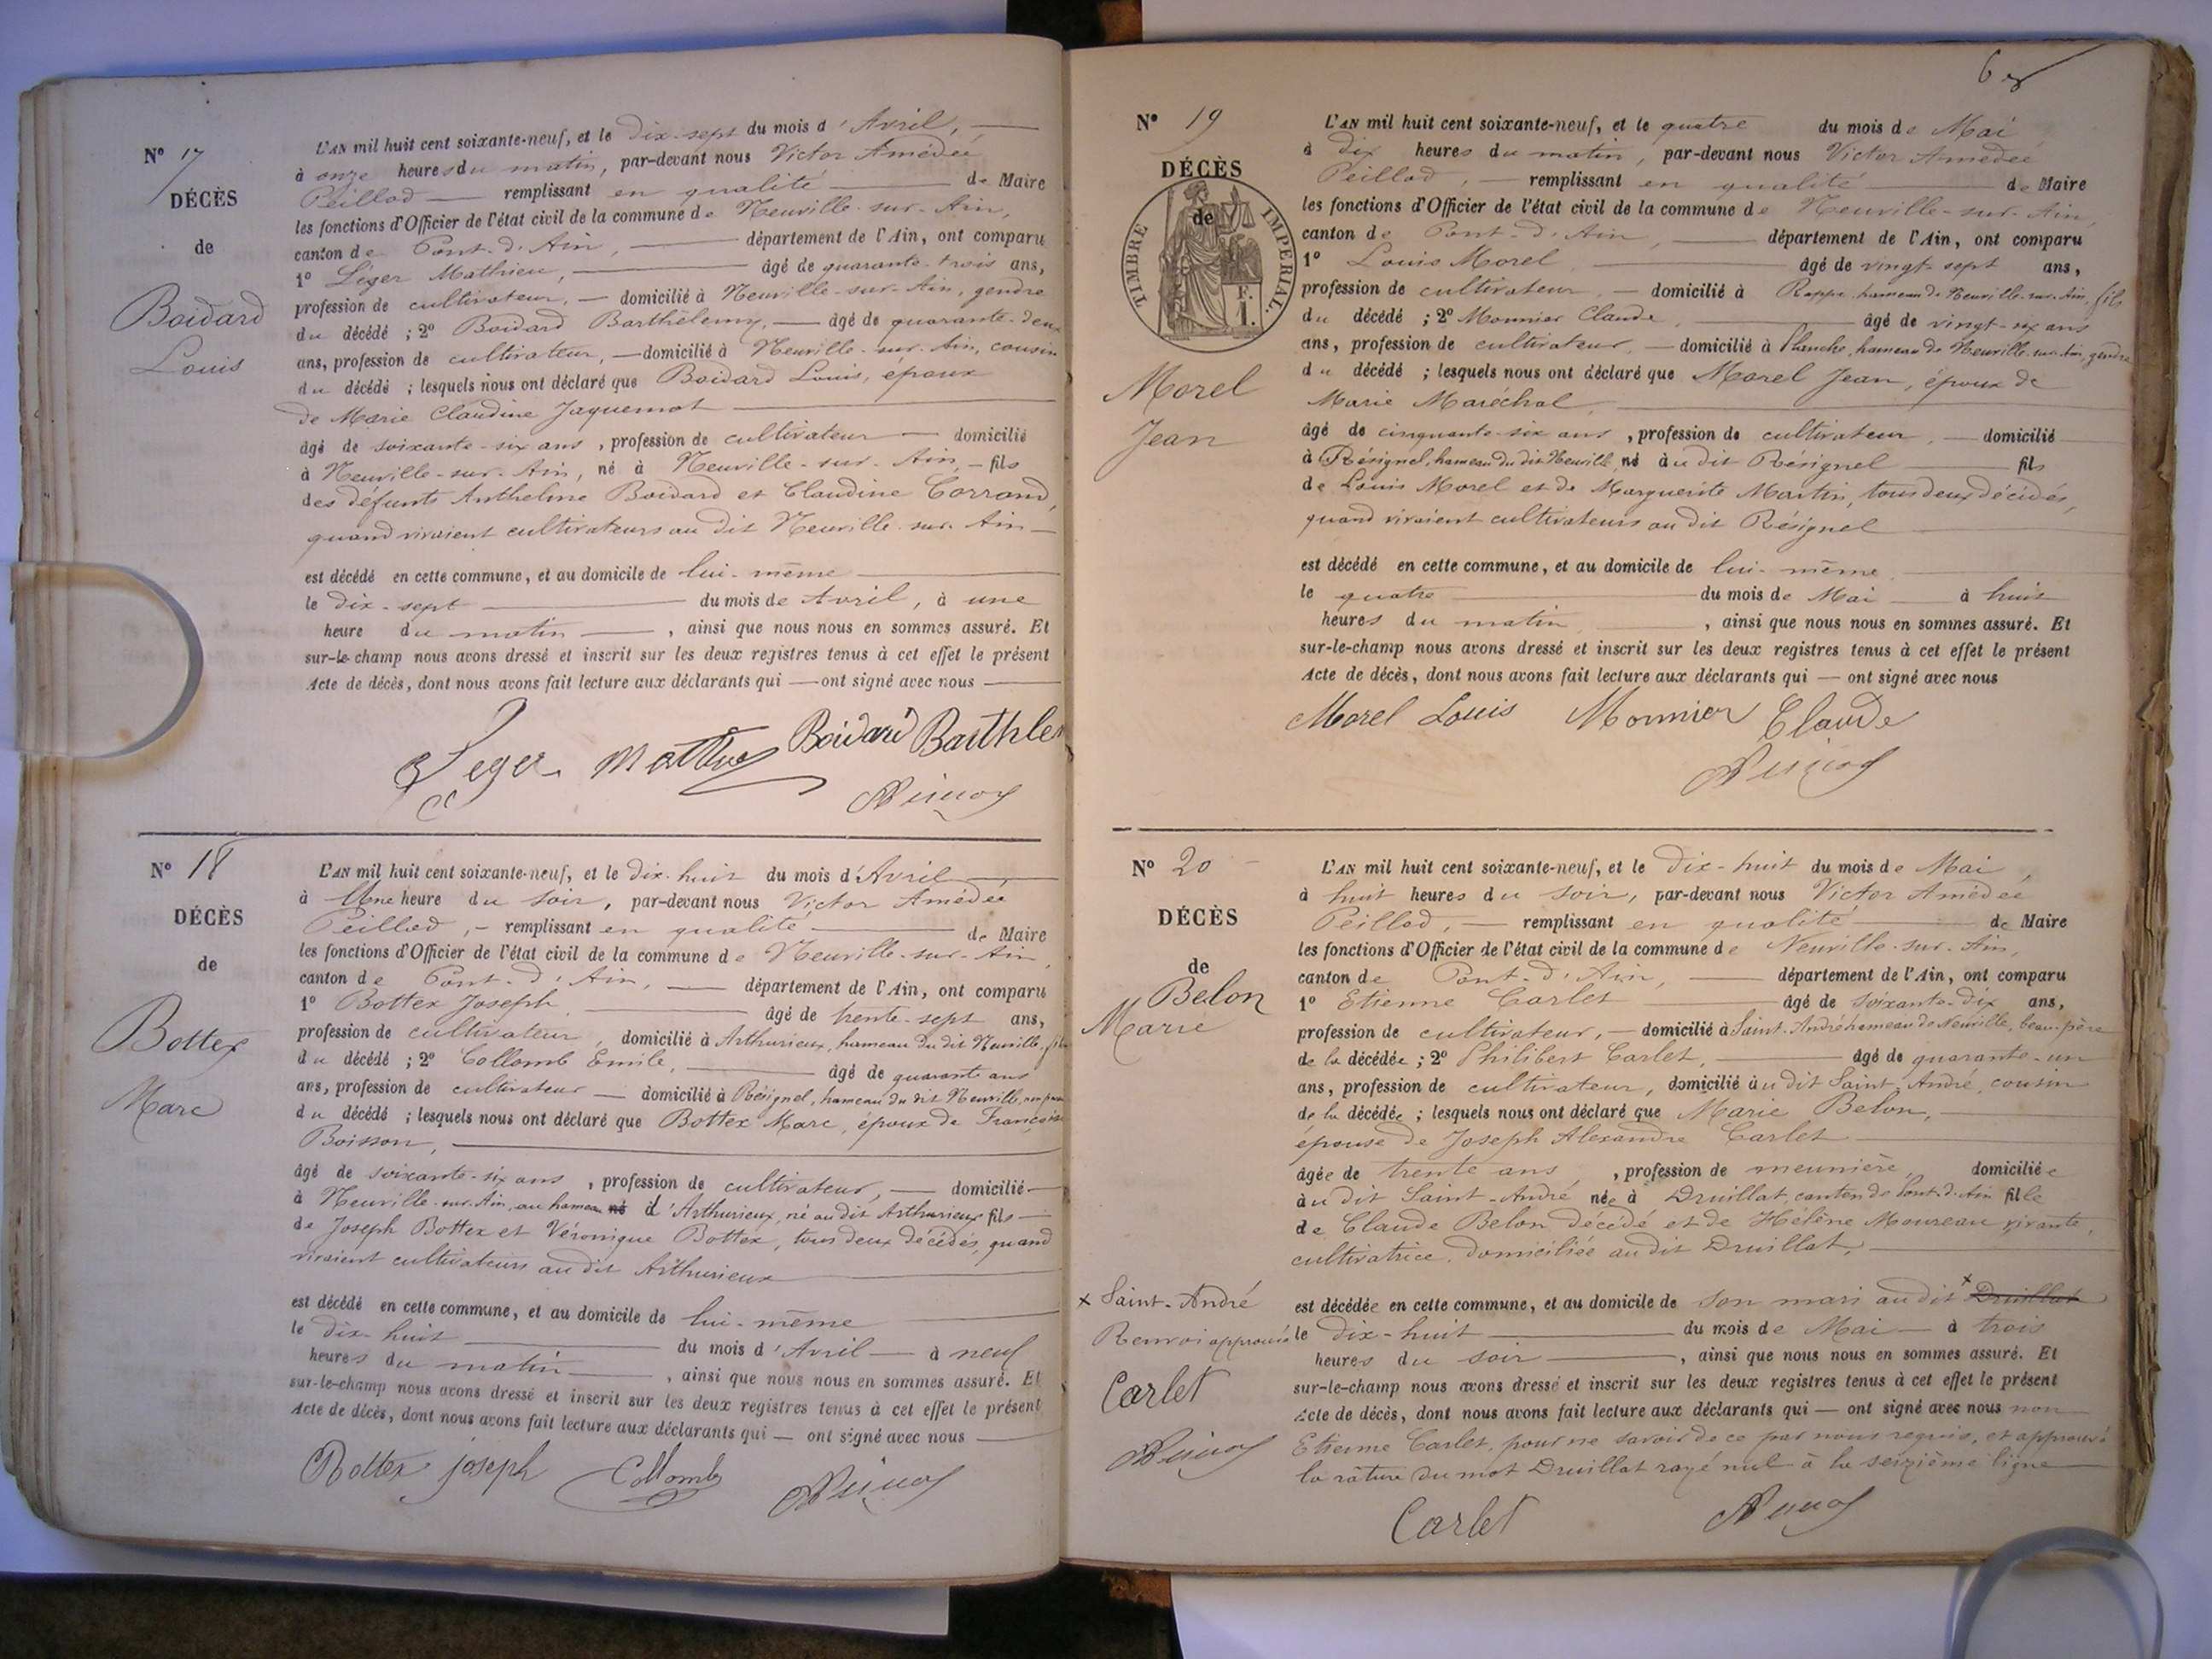 N° 17
DÉCÈS
de
Boidard
Louis
L'AN mil huit cent soixante-neuf, et le dix-sept du mois d'Avril,
à onze heures du matin, par-devant nous Victor Amédée
Peillod remplissant en qualité de Maire
les fonctions d'Officier de l'état civil de la commune de Neuville-sur-Ain,
canton de Pont-d'Ain, département de l'Ain, ont comparu
1° Léger Mathieu, âgé de quarante-trois ans,
profession de cultivateur, domicilié à Neuville-sur-Ain, gendre
du décédé ; 2° Boidard Barthélemy, âgé de quarante-deux
ans, profession de cultivateur, domicilié à Neuville-sur-Ain, cousin
du décédé ; lesquels nous ont déclaré que Boidard Louis, époux
de Marie Claudine Jaquemot
âgé de soixante-six ans, profession de cultivateur domicilié
à Neuville-sur-Ain, né à Neuville-sur-Ain, fils
des défunts Anthelme Boidard et Claudine Corrand,
quand vivaient cultivateurs au dit Neuville-sur-Ain
est décédé en cette commune, et au domicile de lui-même
le dix-sept du mois de Avril, à une
heure du matin, ainsi que nous nous en sommes assuré. Et
sur-le-champ nous avons dressé et inscrit sur les deux registres tenus à cet effet le présent
Acte de décès, dont nous avons fait lecture aux déclarants qui ont signé avec nous
Leger Mathieu Boidard Barthle
N° 18
DÉCÈS
de
Bottex
Marc
L'AN mil huit cent soixante-neuf, et le dix-huit du mois d'Avril
à Une heure du soir, par-devant nous Victor Amédée
Peillod, remplissant en qualité de Maire
les fonctions d'Officier de l'état civil de la commune de Neuville-sur-Ain,
canton de Pont-d'Ain, département de l'Ain, ont comparu
1° Bottex Joseph, âgé de trente-sept ans,
profession de cultivateur, domicilié à Arthurieux, hameau du dit Neuville, fils
du décédé ; 2° Collomb Emile, âgé de quarante ans
ans, profession de cultivateur domicilié à Résignel, hameau du dit Neuville,
du décédé ; lesquels nous ont déclaré que Bottex Marc, époux de Françoise
Boisson,
âgé de soixante-six ans, profession de cultivateur, domicilié
à Neuville-sur-Ain, au hameau né d'Arthurieux, né au dit Arthurieux fils
de Joseph Bottex et Véronique Bottex, tous deux décédés, quand
vivaient cultivateurs au dit Arthurieux
est décédé en cette commune, et au domicile de lui-même
le dix-huit du mois d'Avril à neuf
heures du matin, ainsi que nous nous en sommes assuré. Et
sur-le-champ nous avons dressé et inscrit sur les deux registres tenus à cet effet le présent
Acte de décès, dont nous avons fait lecture aux déclarants qui ont signé avec nous
Bottex joseph Collomb
N° 19
DÉCÈS
de
TIMBRE IMPÉRIAL.
Morel
Jean
L'AN mil huit cent soixante-neuf, et le quatre du mois de Mai
à dix heures du matin, par-devant nous Victor Amédée
Peillod, remplissant en qualité de Maire
les fonctions d'Officier de l'état civil de la commune de Neuville-sur-Ain
canton de Pont-d'Ain, département de l'Ain, ont comparu
1° Louis Morel, âgé de vingt-sept ans,
profession de cultivateur, domicilié à Rappe, hameau de Neuville-sur-Ain, fils
du décédé ; 2° Monnier Claude, âgé de vingt-six ans
ans, profession de cultivateur, domicilié à Planche, hameau de Neuville-sur-Ain, gendre
du décédé ; lesquels nous ont déclaré que Morel Jean, époux de
Marie Maréchal,
âgé de cinquante-six ans, profession de cultivateur, domicilié
à Résignel, hameau du dit Neuville, né au dit Résignel fils
de Louis Morel et de Marguerite Martin, tous deux décédés,
quand vivaient cultivateurs au dit Résignel
est décédé en cette commune, et au domicile de lui-même
le quatre du mois de Mai à huit
heures du matin, ainsi que nous nous en sommes assuré. Et
sur-le-champ nous avons dressé et inscrit sur les deux registres tenus à cet effet le présent
Acte de décès, dont nous avons fait lecture aux déclarants qui ont signé avec nous
Morel Louis Monnier Claude
N° 20
DÉCÈS
de
Belon
Marie
L'AN mil huit cent soixante-neuf, et le dix-huit du mois de Mai,
à huit heures du soir, par-devant nous Victor Amédée
Peillod, remplissant en qualité de Maire
les fonctions d'Officier de l'état civil de la commune de Neuville-sur-Ain,
canton de Pont-d'Ain, département de l'Ain, ont comparu
1° Etienne Carlet âgé de soixante-dix ans,
profession de cultivateur, domicilié à Saint-André hameau de Neuville, beau-père
de la décédée ; 2° Philibert Carlet, âgé de quarante-un
ans, profession de cultivateur, domicilié au dit Saint-André, cousin
de la décédée ; lesquels nous ont déclaré que Marie Belon,
épouse de Joseph Alexandre Carlet
âgée de trente ans, profession de meunière, domiciliée
au dit Saint-André née à Druillat, canton de Pont-d'Ain fille
de Claude Belon décédé et de Hélène Moureau vivante,
cultivatrice, domiciliée au dit Druillat,
est décédée en cette commune, et au domicile de son mari au dit x Druillat
le dix-huit du mois de Mai à trois
heures du soir, ainsi que nous nous en sommes assuré. Et
sur-le-champ nous avons dressé et inscrit sur les deux registres tenus à cet effet le présent
Acte de décès, dont nous avons fait lecture aux déclarants qui ont signé avec nous non
Etienne Carlet, pour ne savoir de ce par nous requis, et approuvé
la râture du mot Druillat rayé nul à la seizième ligne
x Saint-André
Renvoi approuvé
Carlet
Carlet